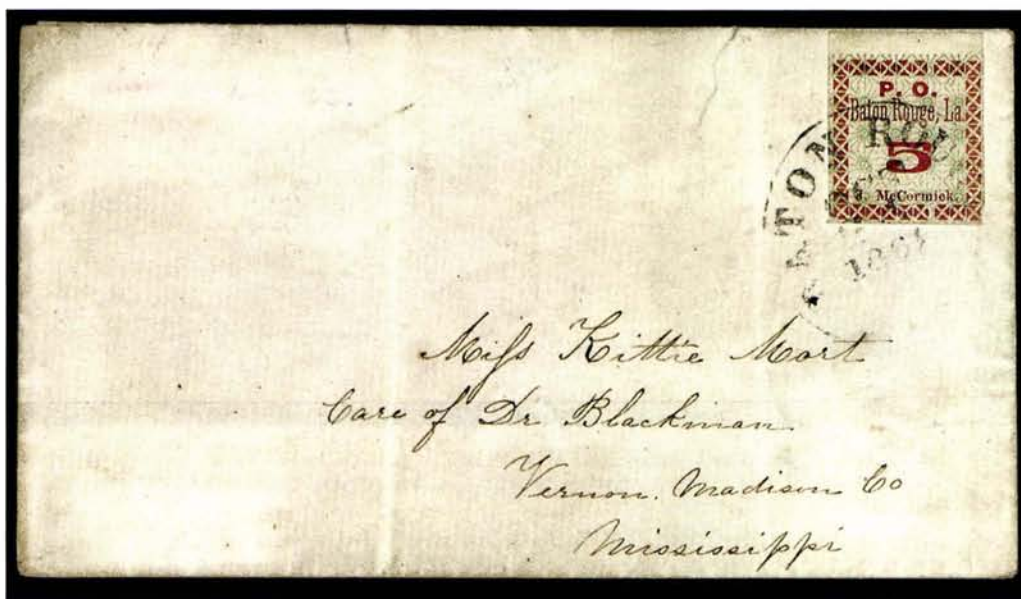 P. O.
Baton Rouge, La.
5
J. McCormick.
ATON ROU
1861
Miſs Kittie Mort
Care of Dr Blackman
Vernon. Madison Co
Mississippi